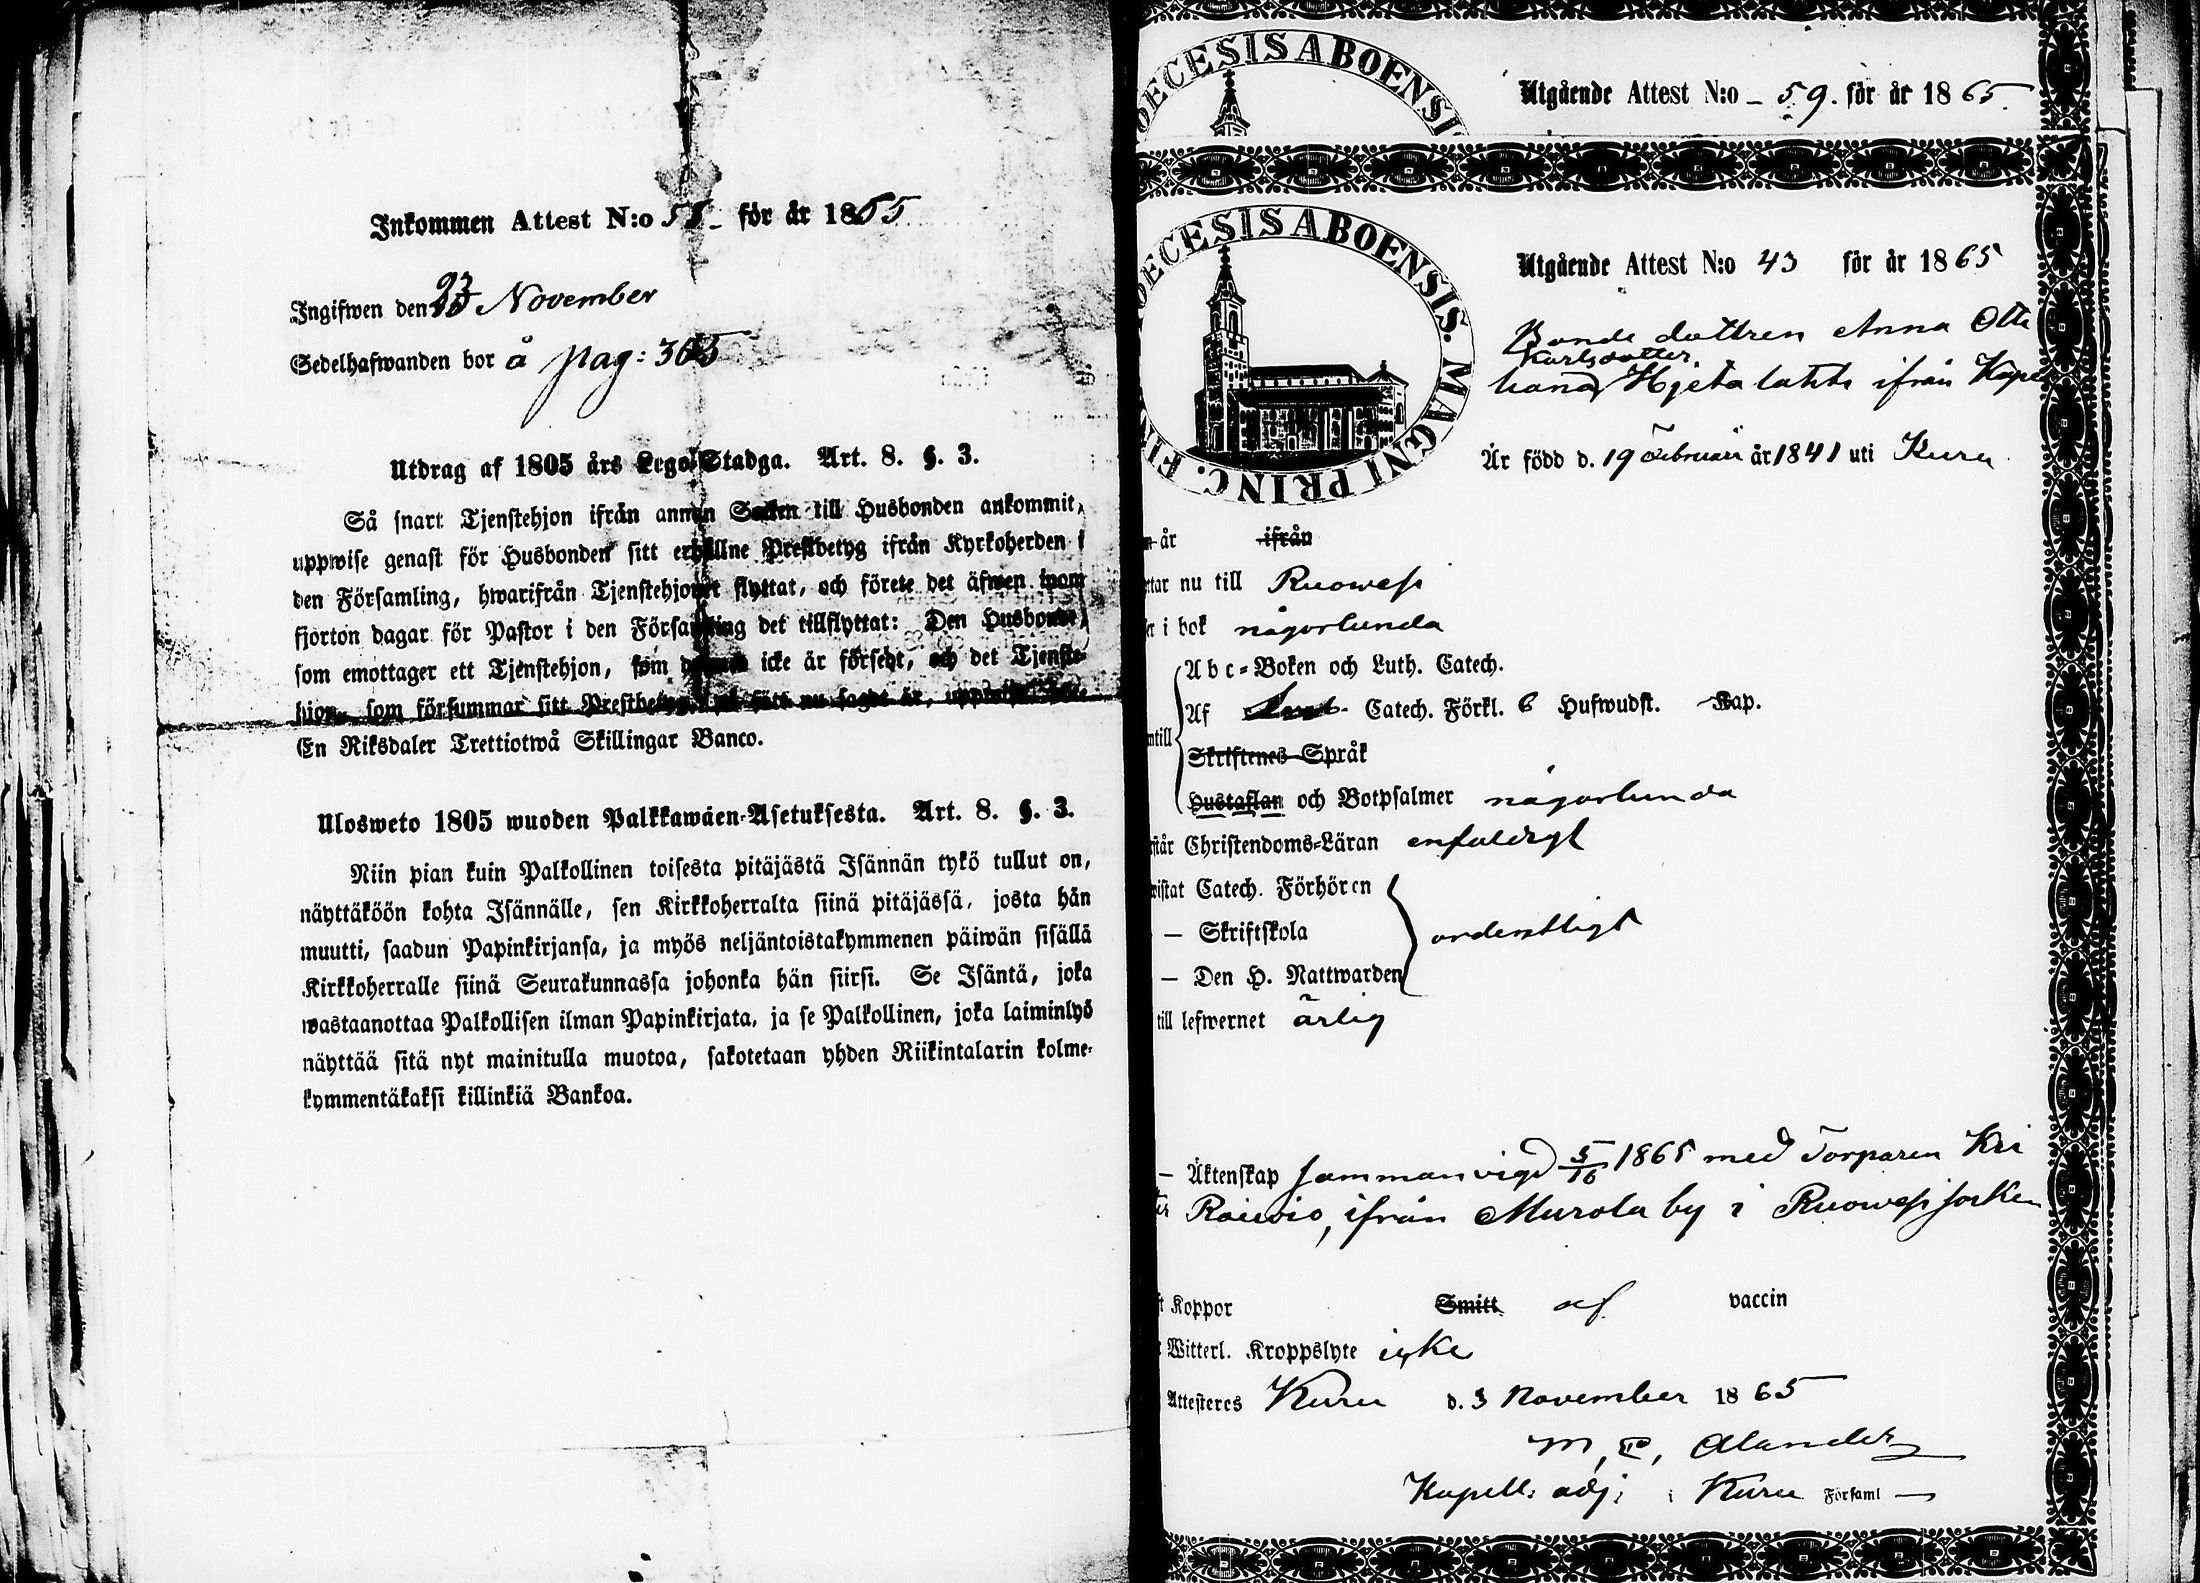 Inkommen Attest N:o 58 för år 1865
Ingifwen den 23 November
Sedelhafwanden bor å pag: 365
Utdrag af 1805 års Lego-Stadga. Art. 8. §. 3.
Så snart Tjenstehjon ifrån annan Socken till Husbonden ankommit,
uppwise genast för Husbonden sitt erhållne Prestbetyg ifrån Kyrkoherden i
den Församling, hwarifrån Tjenstehjonet flyttat, och förete det äfwen inom
fjorton dagar för Pastor i den Församling det tillflyttat: Den Husbonde,
som emottager ett Tjenstehjon, som dermed icke är försedt, och det Tjenste-
hjon, som försummar sitt Prestbetyg, på sätt nu sagdt är, uppwisa,
En Riksdaler Trettiotwå Skillingar Banco.
Ulosweto 1805 wuoden Palkkawäen-Asetuksesta. Art. 8. §. 3.
Niin pian kuin Palkollinen toisesta pitäjästä Isännän tykö tullut on,
näyttäköön kohta Isännälle, sen Kirkkoherralta siinä pitäjässä, josta hän
muutti, saadun Papinkirjansa, ja myös neljäntoistakymmenen päiwän sisällä
Kirkkoherralle siinä Seurakunnassa johonka hän siirsi. Se Isäntä, joka
wastaanottaa Palkollisen ilman Papinkirjata, ja se Palkollinen, joka laiminlyö
näyttää sitä nyt mainitulla muotoa, sakotetaan yhden Riikintalarin kolme-
kymmentäkaksi killinkiä Bankoa.
OECESIS ABOENSI
Utgående Attest N:o 59. för år 1865.
OECESIS ABOENSIS. MAGNI PRINC. FIN
Utgående Attest N:o 43 för år 1865
Bonde dottren Anna Otte
Karlsdotter
liana Hjetalahti ifrån Kape
Är född d. 19 Februari år 1841 uti Kuru
år ifrån
ttar nu till Ruowesi
i bok någorlunda
Abc-Boken och Luth. Catech.
Af Catech. Förkl. 6 Hufwudst. Kap.
ntill
Skriftenes Språk
Hustaflan och Botpsalmer någorlunda
står Christendoms-Läran enfaldigt
wistat Catech. Förhören
— Skriftskola ordentligt
— Den H. Nattwarden
till lefwernet ärlig
— Äktenskap sammanvigd 5/10 1865 med Torparen Kri
ster Roiwio, ifrån Murola by i Ruowesi socken
t Koppor Smitt af vaccin
Witterl. Kroppslyte icke
Attesteres Kuru d. 3 November 1865
M. E. Alander
Kapell: adj: i Kuru Församl